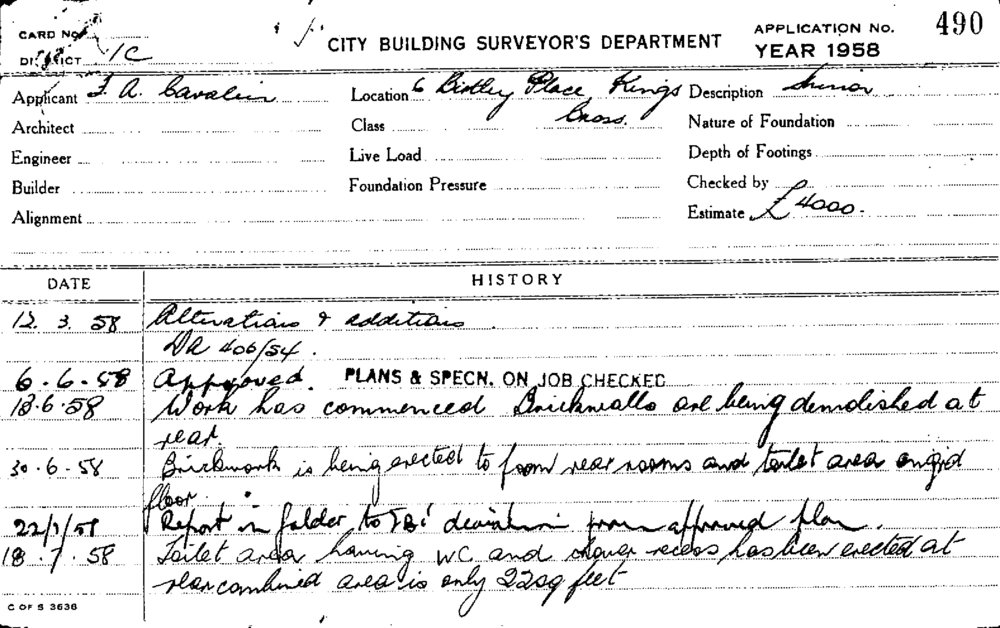 CARD No.
DISTRICT 1C
CITY BUILDING SURVEYOR'S DEPARTMENT
APPLICATION No. 490
YEAR 1958
Applicant F. A. Cavalein
Location 6 Bietley Place, Kings Cross.
Description Minor
Architect
Class
Nature of Foundation
Engineer
Live Load
Depth of Footings
Builder
Foundation Pressure
Checked by
Alignment
Estimate £4000.
DATE HISTORY
12. 3. 58 Alterations & additions.
DA 406/54.
6.6.58 Approved. PLANS & SPECN. ON JOB CHECKED
13.6.58 Work has commenced Brickwalls are being demolished at
rear.
30.6.58 Brickwork is being erected to form rear rooms and toilet area on grd
floor.
22/7/58 Report in folder to deviation from approved plan.
18.7.58 Toilet area having WC and shower recess, has been erected at
rear combined area is only 22 sq feet
C OF S 3636